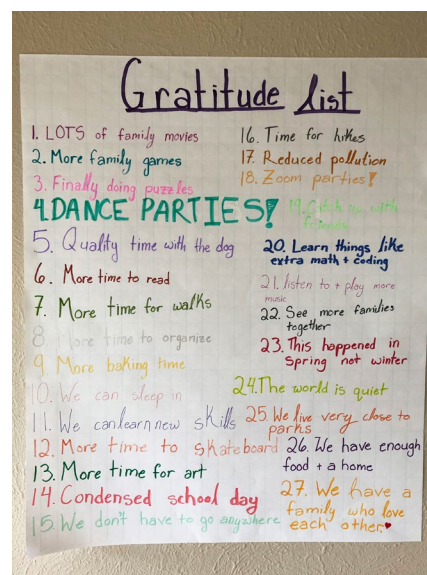 Gratitude list
1. LOTS of family movies
2. More family games
3. Finally doing puzzles
4. DANCE PARTIES!
5. Quality time with the dog
6. More time to read
7. More time for walks
8. More time to organize
9. More baking time
10. We can sleep in
11. We can learn new skills
12. More time to skateboard
13. More time for art
14. Condensed school day
15. We don't have to go anywhere
16. Time for hikes
17. Reduced pollution
18. Zoom parties!
19. Catch up with
friends
20. Learn things like
extra math + coding
21. listen to + play more
music
22. See more families
together
23. This happened in
Spring not winter
24. The world is quiet
25. We live very close to
parks
26. We have enough
food + a home
27. We have a
family who love
each other.